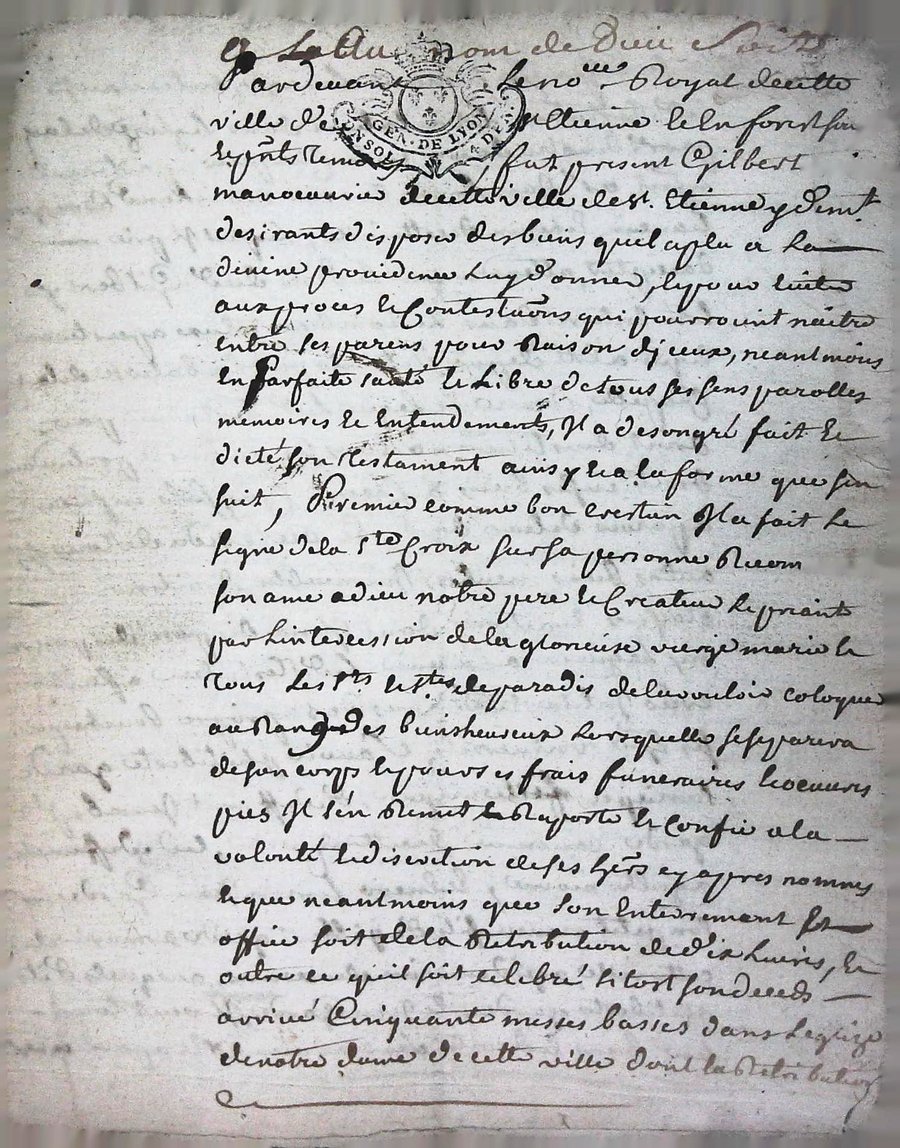 Au nom de Dieu Soit
Pardevant le no.re Royal de cette
GEN. DE LYON
ville de St Etienne le en forest sou
les pnts temoins fut present Gilbert
manoeuvrier de cette ville de St. Etienne y dem.t
desirants disposer des biens quil a plu a la
divine providence luy donner, et pour eviter
aux proces et Contestaons qui pourroint naitre
entre ses parens pour Raison djceux, neantmoins
en parfaite santé et Libre de tous ses sens parolles
memoires et Entendements, Jl a de son gré fait et
dicté son testament ainsy et a la forme que sen
suit, Premier comme bon cretien Jl a fait le
signe de la Ste Croix sur sa personne Recom
son ame a dieu notre pere et Createur le priant
par Lintercession de la glorieuse vierge marie et
tous les Sts et Stes de paradis de la vouloir coloquer
au Rang des bienheureux Lorsquelle se separera
de son corps et pour ses frais funeraires et oeuvres
pies Jl s'en Remet et Raporte et Confie a la
volonté et discretion de ses hers cy apres nommes
et que neantmoins que son Enterrement et
office soit de la Retribution de dix Livres, et
outre ce quil soit celebré sitort son deceds
arrivé Cinquante messes basses dans leglize
de notre dame de cette ville dont la Retribution